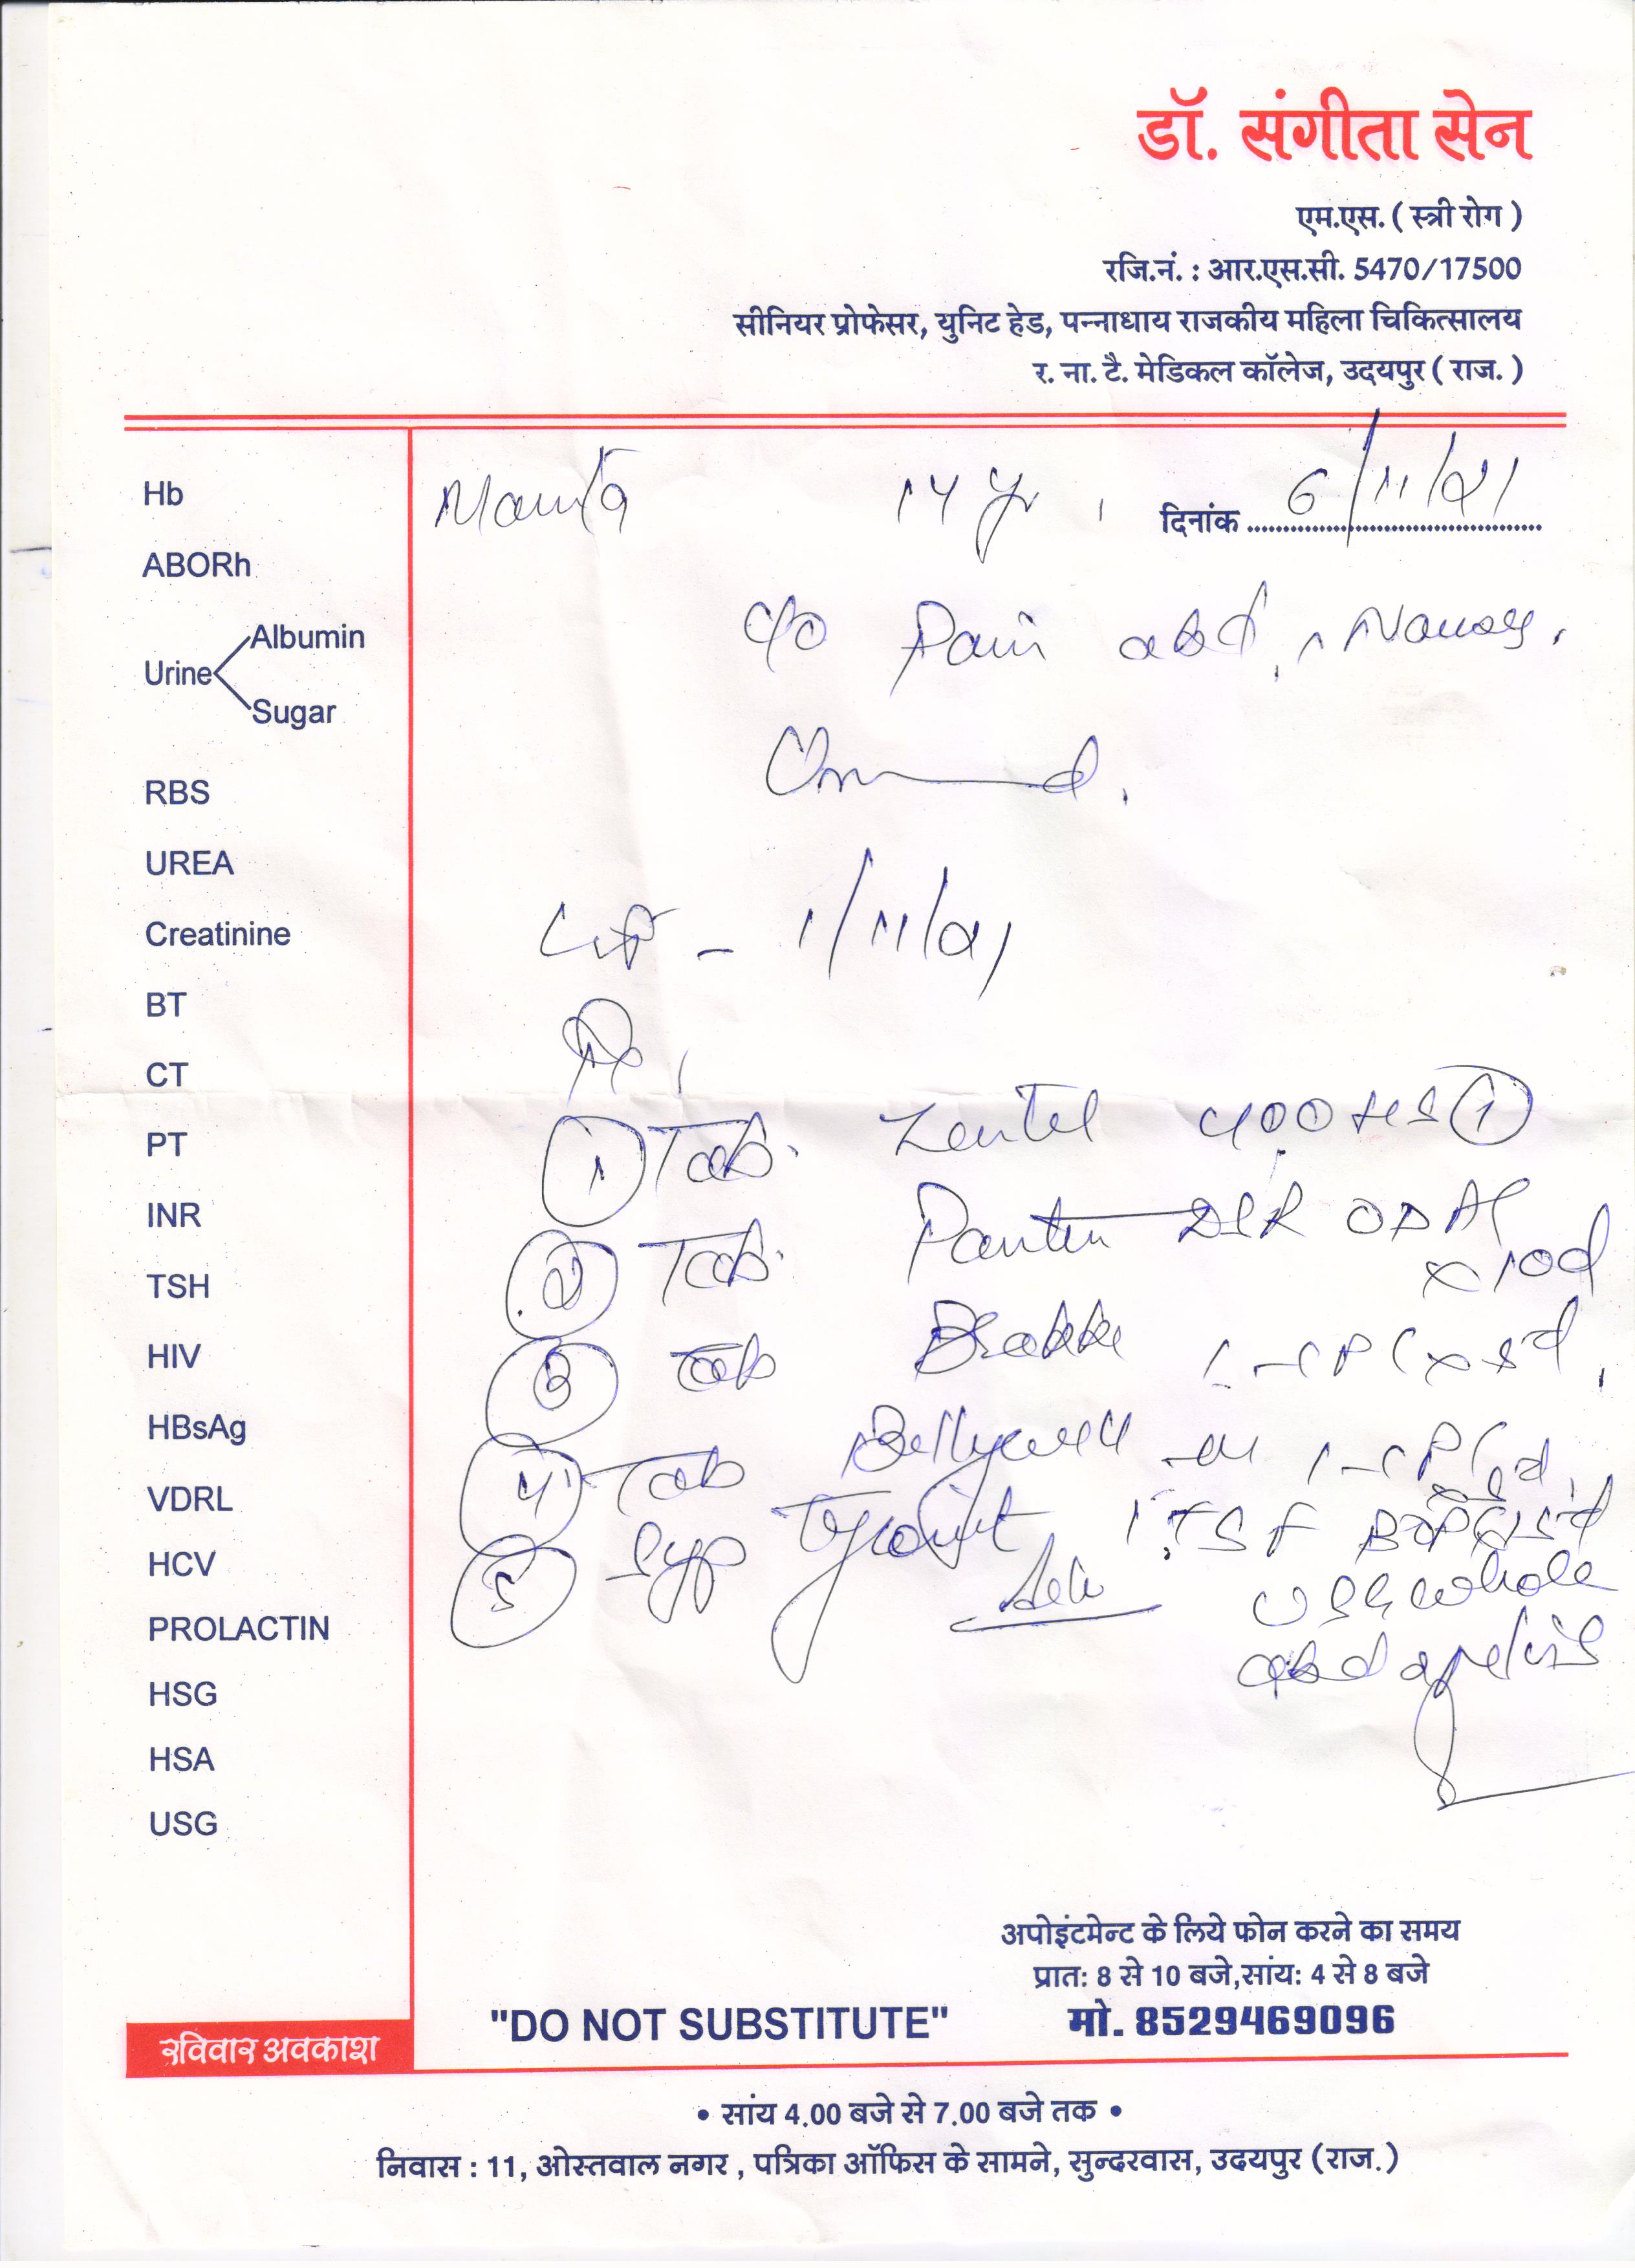 डॉ. संगीता सेन
एम.एस. ( स्त्री रोग )
रजि.नं. : आर.एस.सी. 5470/17500
सीनियर प्रोफेसर, युनिट हेड, पन्नाधाय राजकीय महिला चिकित्सालय
र. ना. टै. मेडिकल कॉलेज, उदयपुर ( राज. )
14 yr
दिनांक 6/11/21
c/o Pain abd, Nausea,
- 1/11/21
Rx
1 Tab. Zentel 400 HS 1
2 Tab. DSR OD AC
x 10d
3 Tab
4 Tab
5 Syp 1 TSF
USG whole
abd & pelvis
Hb
ABORh
Urine Albumin
Sugar
RBS
UREA
Creatinine
BT
CT
PT
INR
TSH
HIV
HBsAg
VDRL
HCV
PROLACTIN
HSG
HSA
USG
अपोइंटमेन्ट के लिये फोन करने का समय
प्रात: 8 से 10 बजे,सांय: 4 से 8 बजे
"DO NOT SUBSTITUTE" मो. 8529469096
रविवार अवकाश
• सांय 4.00 बजे से 7.00 बजे तक •
निवास : 11, ओस्तवाल नगर , पत्रिका ऑफिस के सामने, सुन्दरवास, उदयपुर (राज.)